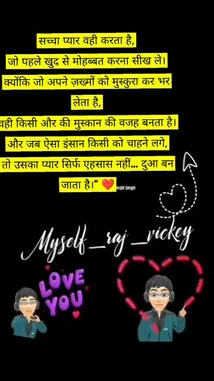 सच्चा प्यार वही करता है,
जो पहले खुद से मोहब्बत करना सीख ले।
क्योंकि जो अपने ज़ख्मों को मुस्कुरा कर भर
लेता है,
वही किसी और की मुस्कान की वजह बनता है।
और जब ऐसा इंसान किसी को चाहने लगे,
तो उसका प्यार सिर्फ एहसास नहीं... दुआ बन
जाता है।" ❤️
Arijit Singh
Myself_raj_vickey
LOVE
YOU